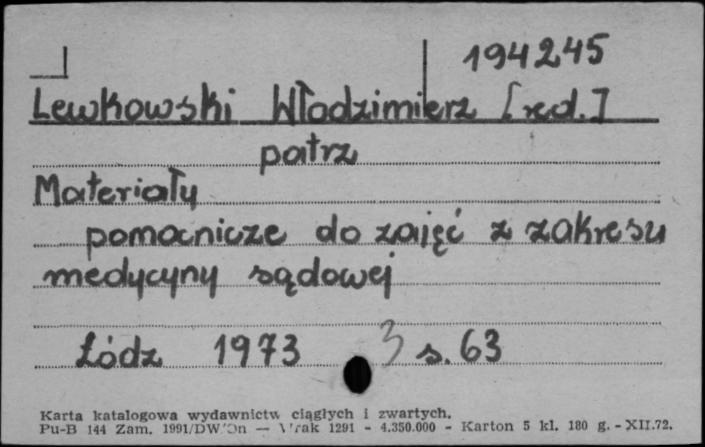 194245
Lewkowski Włodzimierz [red.]
patrz
Materiały
pomocnicze do zajęć z zakresu
medycyny sądowej
Łódz 1973 3 s. 63
Karta katalogowa wydawnictw ciągłych i zwartych.
Pu-B 144 Zam. 1991/DW — 1291 - 4.350.000 - Karton 5 kl. 180 g. - XII.72.